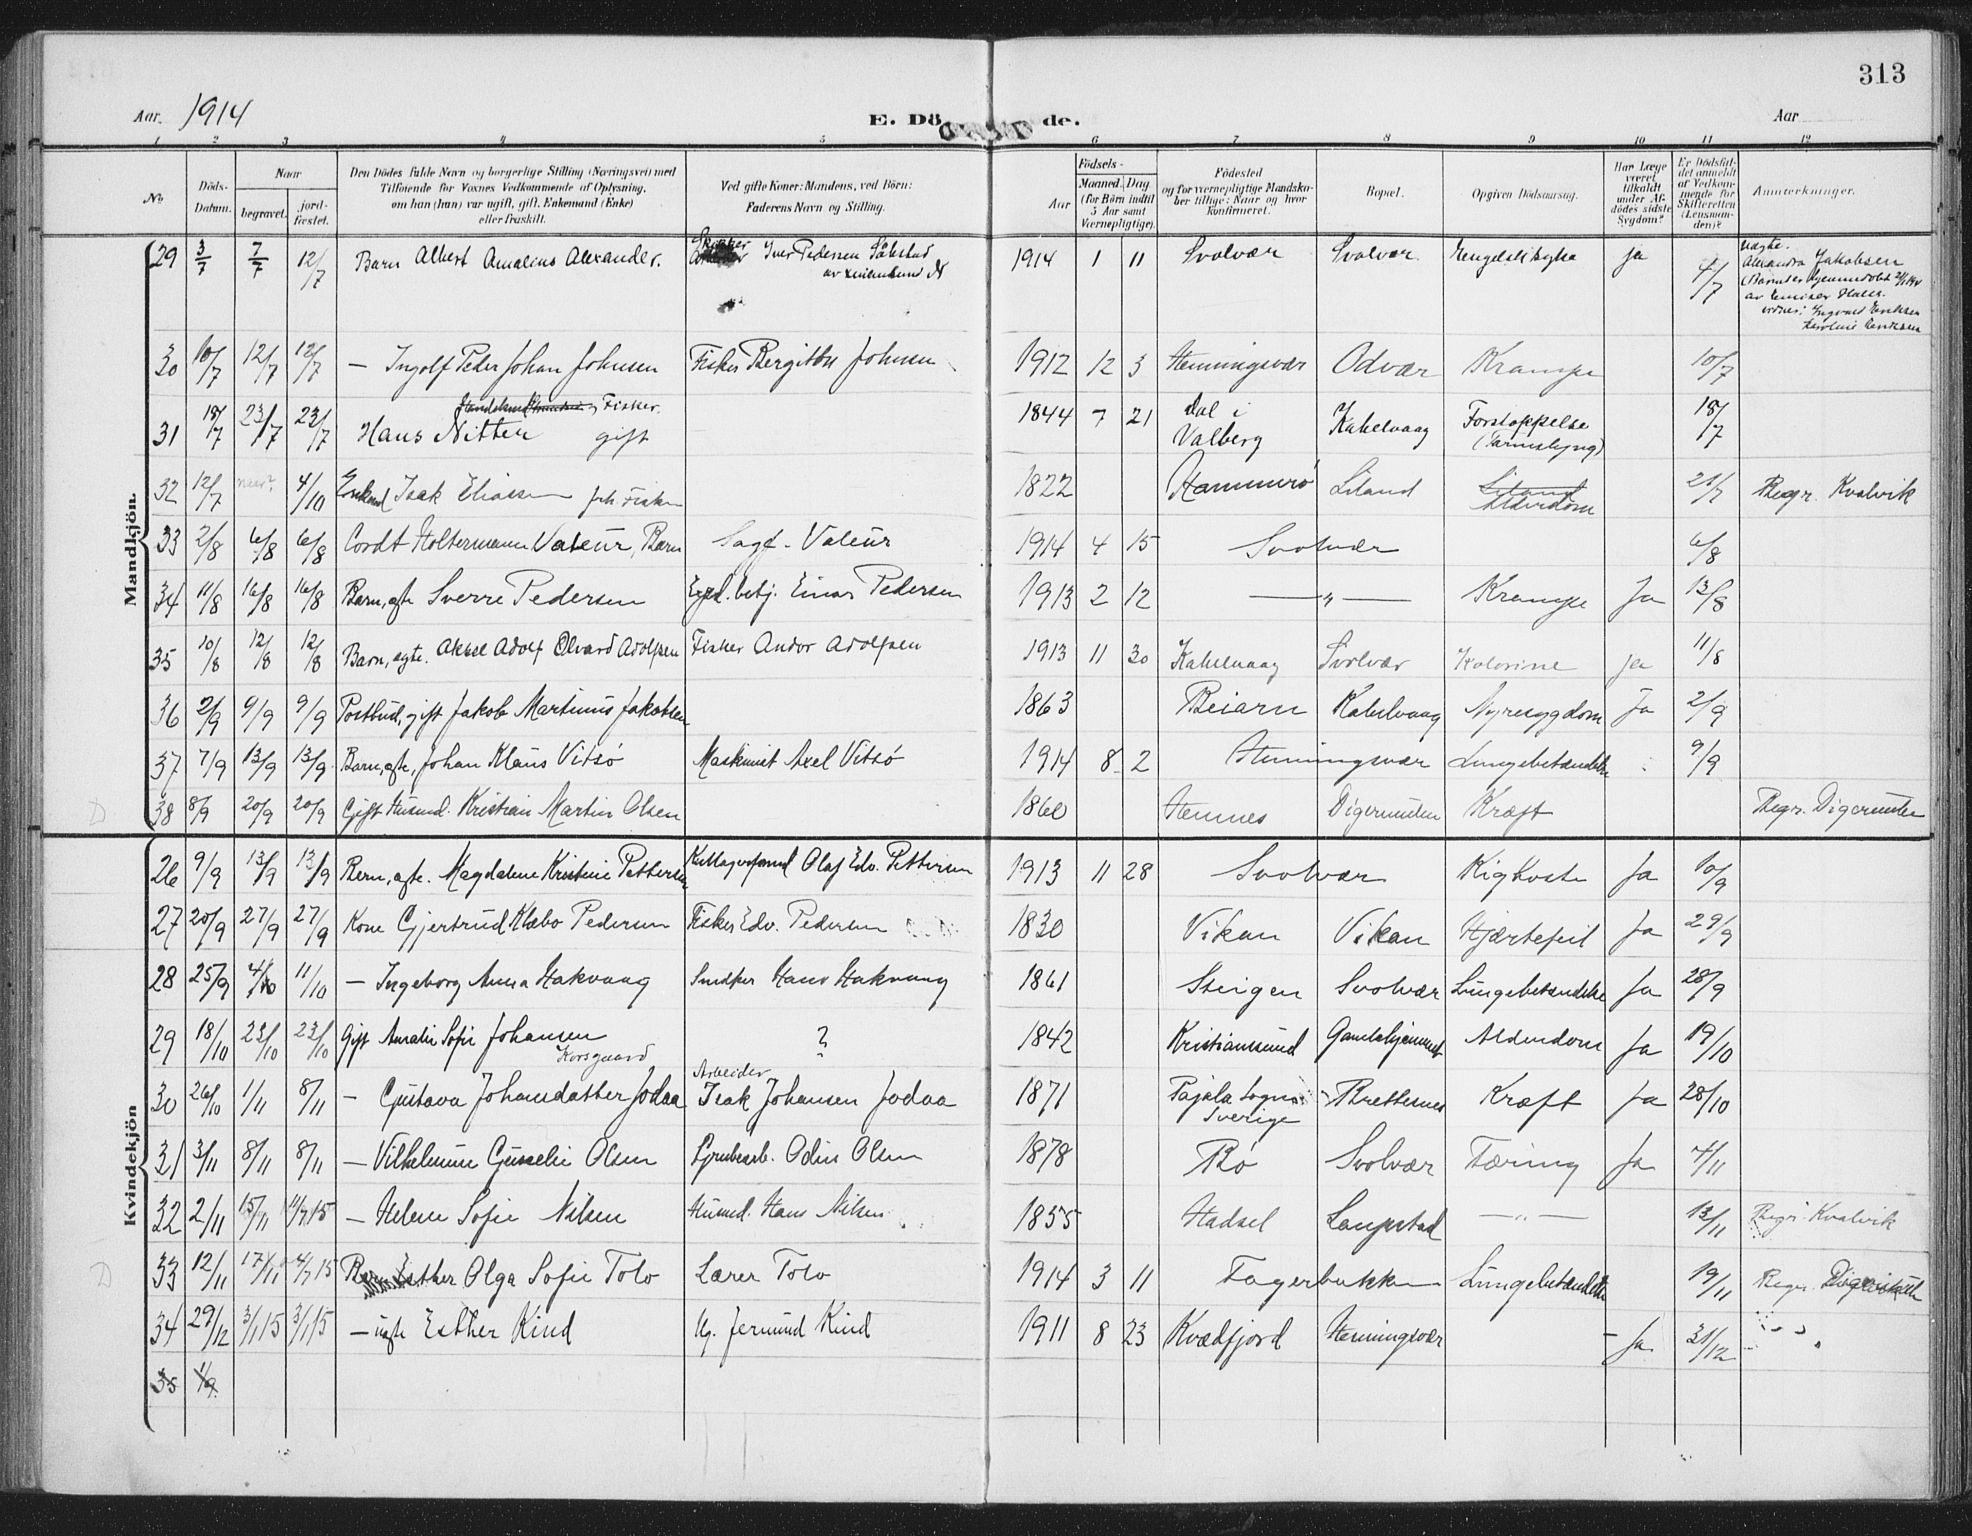 313
Aar 1914 E. Dö de. Aar
1 2 3 4 5 6 7 8 9 10 11 12
No. Döds-Datum. Naar begravet. jord-fæstet. Den Dödes fulde Navn og borgerlige Stilling (Næringsvei) med Tilföiende for Voxnes Vedkommende af Oplysning, om han (hun) var ugift, gift, Enkemand (Enke) eller fraskilt. Ved gifte Koner: Mandens, ved Börn: Faderens Navn og Stilling. Födsels- Aar Maaned. Dag (for Börn indtil 5 Aar samt Værnepligtige). Födested og for værnepligtige Mandskaber tillige: Naar og hvor konfirmeret. Bopæl. Opgiven Dödsaarsag. Har Læge været tilkaldt under Afdödes sidste Sygdom? Er Dödsfaldet anmeldt af Vedkommende for Skifteretten (Lensmanden)? Anmærkninger.
Mandkjön.
29 3/7 7/7 12/7 Barn Albert Amalius Alexander. Iver Pedersen 1914 1 11 Svolvær Svolvær. Engelsk syke ja 4/7 Uægte. Alexandra Jakobsen
30 10/7 12/7 12/7 – Ingolf Peder Johan Johnsen Fisker Bergiton Johnsen 1912 12 3 Henningsvær Odvær Krampe 10/7
31 18/7 23/7 23/7 Fisker. Hans Nitter gift 1844 7 21 Dal i Valberg Kabelvaag Forstoppelse 18/7
32 12/7 naar? 4/10 Enkemd Isak Eliassen fhv Fisker 1822 Hammerø Liland Liland Alderdom 21/7 Begr. Kvalvik
33 2/8 6/8 6/8 Cordt Holtermann Valeur, Barn Sagf. Valeur 1914 4 15 Svolvær 6/8
34 11/8 16/8 16/8 Barn, egte Sverre Pedersen Exped. betj. Einar Pedersen 1913 2 12 — „ — Krampe Ja 13/8
35 10/8 12/8 12/8 Barn, egte. Aksel Adolf Edvard Adolfsen Fisker Andor Adolfsen 1913 11 30 Kabelvaag Svolvær Kolerine ja 11/8
36 2/9 9/9 9/9 Postbud, gift Jakob Martinus Jakobsen 1863 Beiarn Kabelvaag Nyresygdom Ja 2/9
37 7/9 13/9 13/9 Barn, egte, Johan Klaus Vitsø Maskinist Axel Vitsø 1914 8 2 Henningsvær Lungebetændelse 9/9
D 38 8/9 20/9 20/9 Gift Husmd. Kristian Martin Olsen 1860 Hemnes Digermulen Kræft Begr. Digermulen
Kvindekjön
26 9/9 13/9 13/9 Barn, egte. Magdalene Kristine Pettersen Olaf Edv. Pettersen 1913 11 28 Svolvær Kighoste Ja 10/9
27 20/9 27/9 27/9 Kone Gjertrud Klæbo Pedersen Fisker Edv. Pedersen 1830 Vikan Vikan Hjærtefeil Ja 29/9
28 25/9 4/10 11/10 – Ingeborg Anna Hakvaag Snedker Hans Hakvaag 1861 Steigen Svolvær Lungebetændelse Ja 28/9
29 18/10 23/10 23/10 Gift Amalie Sofie Johansen Korsgaard ? 1842 Kristiansund Gamlehjemmet Alderdom Ja 19/10
30 26/10 1/11 8/11 – Gustava Johansdatter Jodaa Arbeider Isak Johansen Jodaa 1871 Pajala Sogn Sverige Brettesnes Kræft Ja 28/10
31 3/11 8/11 8/11 – Vilhelmine Gunelie Olsen Grubearb. Odin Olsen 1878 Bø Svolvær Tæring Ja 4/11
32 2/11 15/11 11/7 15 – Helene Sofie Nilsen Husmd. Hans Nilsen 1855 Hadsel Laupstad — „ — 13/11 Begr. Kvalvik
D 33 12/11 17/11 4/7 15 Barn Esther Olga Sofie Tolo Lærer Tolo 1914 3 11 Fagerbakken Lungebetændelse 19/11 Begr.
34 29/12 3/1 15 3/1 15 – uegte Esther Kind Ug. Jermund Kind 1911 8 23 Kvædfjord Henningsvær – Ja 31/12 „
35 1/9.